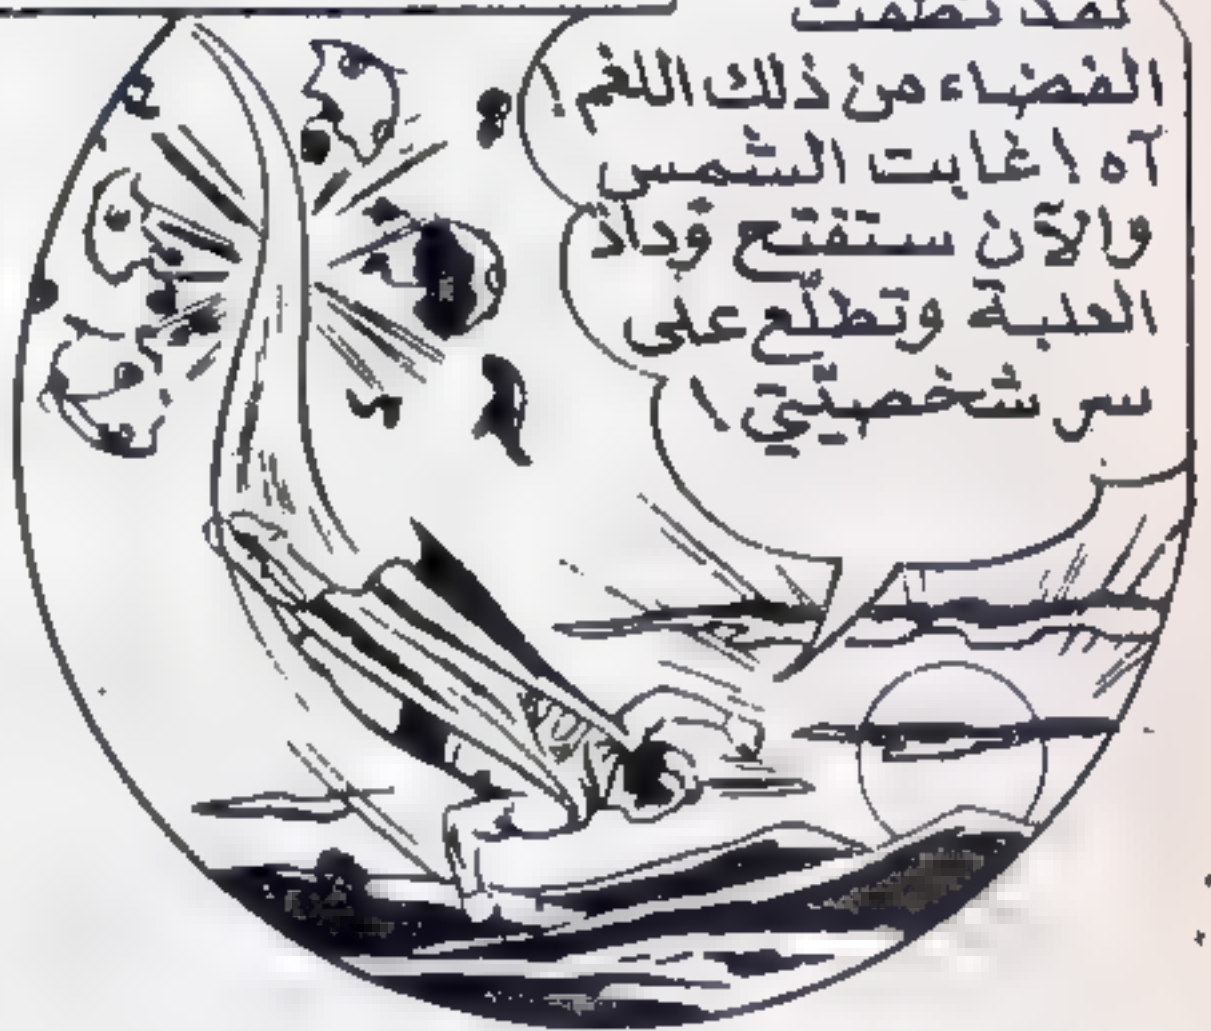 لقد نظفت
الفضاء من ذلك اللغم!
آه! غابت الشمس
والآن ستفتح وداد
العلبة وتطلّع على
سر شخصيّتي!